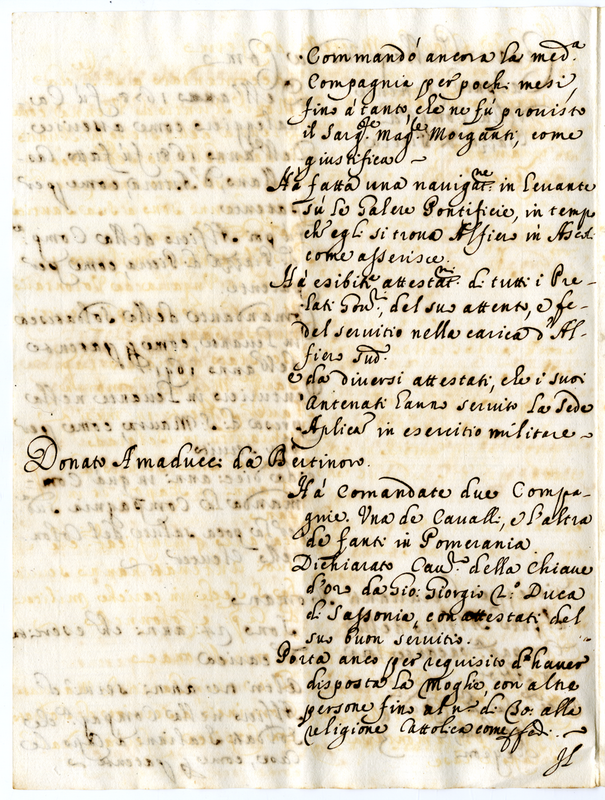 Commandò ancora la med.a
Compagnia per pochi mesi,
fino à tanto, che ne fù provisto
il Sarg.te Mag.re Morganti, come
giustifica
Hà fatta una navigat.ne in Levante
sù le Galere Pontificie, in temp
ch'egli si trova Alfiere in Asc
come asserisce.
Hà esibite attestat.ni di tutti i Pre-
lati Gov.ri, del suo attento, e fe-
del servitio nella carica d'Al-
fiere Sud.
e da diversi attestati, che i suoi
Antenati hanno servito la Sede
Aplica in esercitio militare
Donato Amaducci da Bertinoro.
Hà Comandate due Compa-
gnie. Una de Cavalli, e l'altra
de fanti in Pomerania
Dichiarato Cav. della Chiave
d'oro da Gio: Giorgio 2.o Duca
di Sassonia, con attestati del
suo buon servitio.
Porta anco per requisito d'haver
disposta la Moglie, con altre
persone fino al n.o di 30: alla
religione Cattolica come
Il